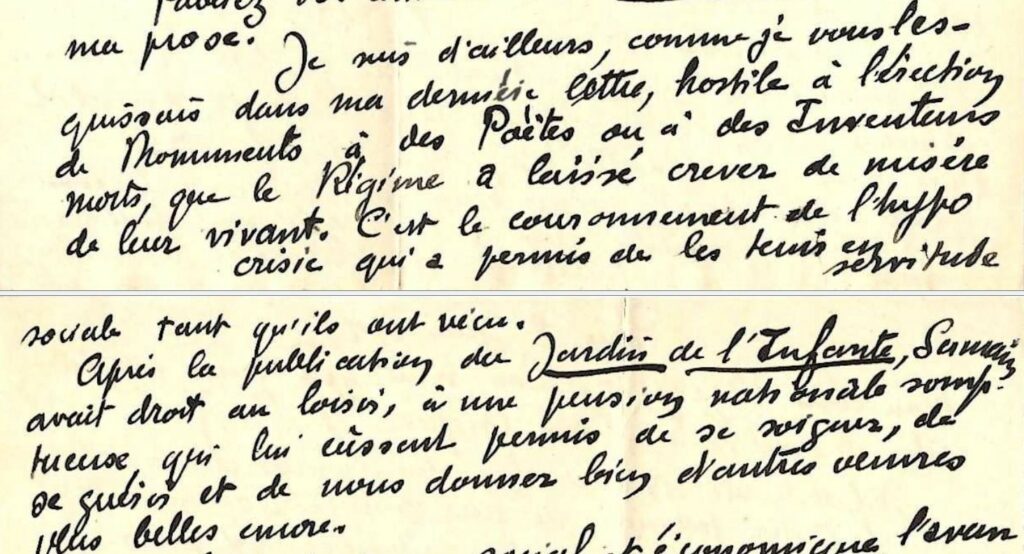 ma prose.
Je suis d'ailleurs, comme je vous l'es-
quissais dans ma dernière lettre, hostile à l'érection
de Monuments à des Poëtes ou à des Inventeurs
morts, que le Régime a laissé crever de misère
de leur vivant. C'est le couronnement de l'hypo
crisie qui a permis de les tenir en
servitude
sociale tant qu'ils ont vécu.
Après la publication du Jardin de l'Infante, Samain
avait droit au loisir, à une pension nationale somp-
tueuse, qui lui eûssent permis de se soigner, de
se guérir et de nous donner bien d'autres oeuvres
plus belles encore.
social et économique l'avan